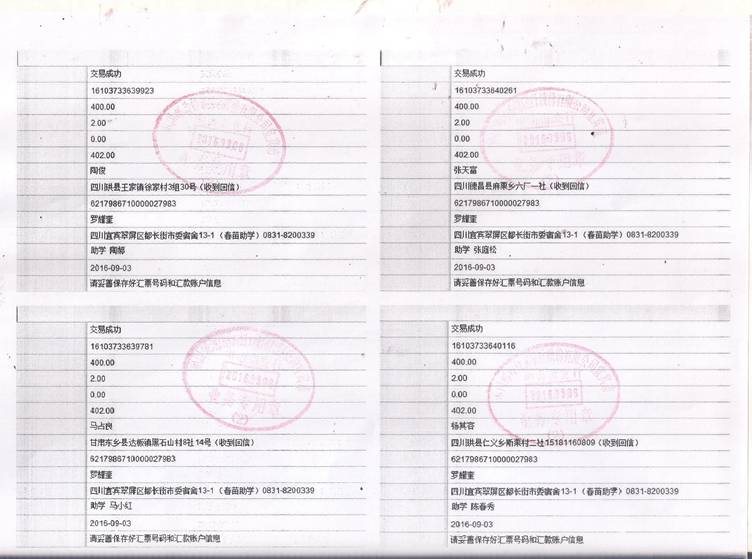 交易成功
16103733639923
400.00
2.00
0.00
402.00
陶俊
四川珙县王家镇徐家村3组30号（收到回信）
6217986710000027983
罗耀奎
四川宜宾翠屏区都长街市委宿舍13-1（春苗助学）0831-8200339
助学 陶
2016-09-03
请妥善保存好汇票号码和汇款账户信息
20160906
交易成功
16103733640261
400.00
2.00
0.00
402.00
张天富
四川德昌县麻栗乡六厂一社（收到回信）
6217986710000027983
罗耀奎
四川宜宾翠屏区都长街市委宿舍13-1（春苗助学）0831-8200339
助学 张庭松
2016-09-03
请妥善保存好汇票号码和汇款账户信息
20160906
交易成功
16103733639781
400.00
2.00
0.00
402.00
马占良
甘肃东乡县达板镇黑石山村8社14号（收到回信）
6217986710000027983
罗耀奎
四川宜宾翠屏区都长街市委宿舍13-1（春苗助学）0831-8200339
助学 马小红
2016-09-03
请妥善保存好汇票号码和汇款账户信息
20160906
业务专用章
交易成功
16103733640116
400.00
2.00
0.00
402.00
杨其容
四川珙县仁义乡斯栗村二社15181160809（收到回信）
6217986710000027983
罗耀奎
四川宜宾翠屏区都长街市委宿舍13-1（春苗助学）0831-8200339
助学 陈春秀
2016-09-03
请妥善保存好汇票号码和汇款账户信息
20160906